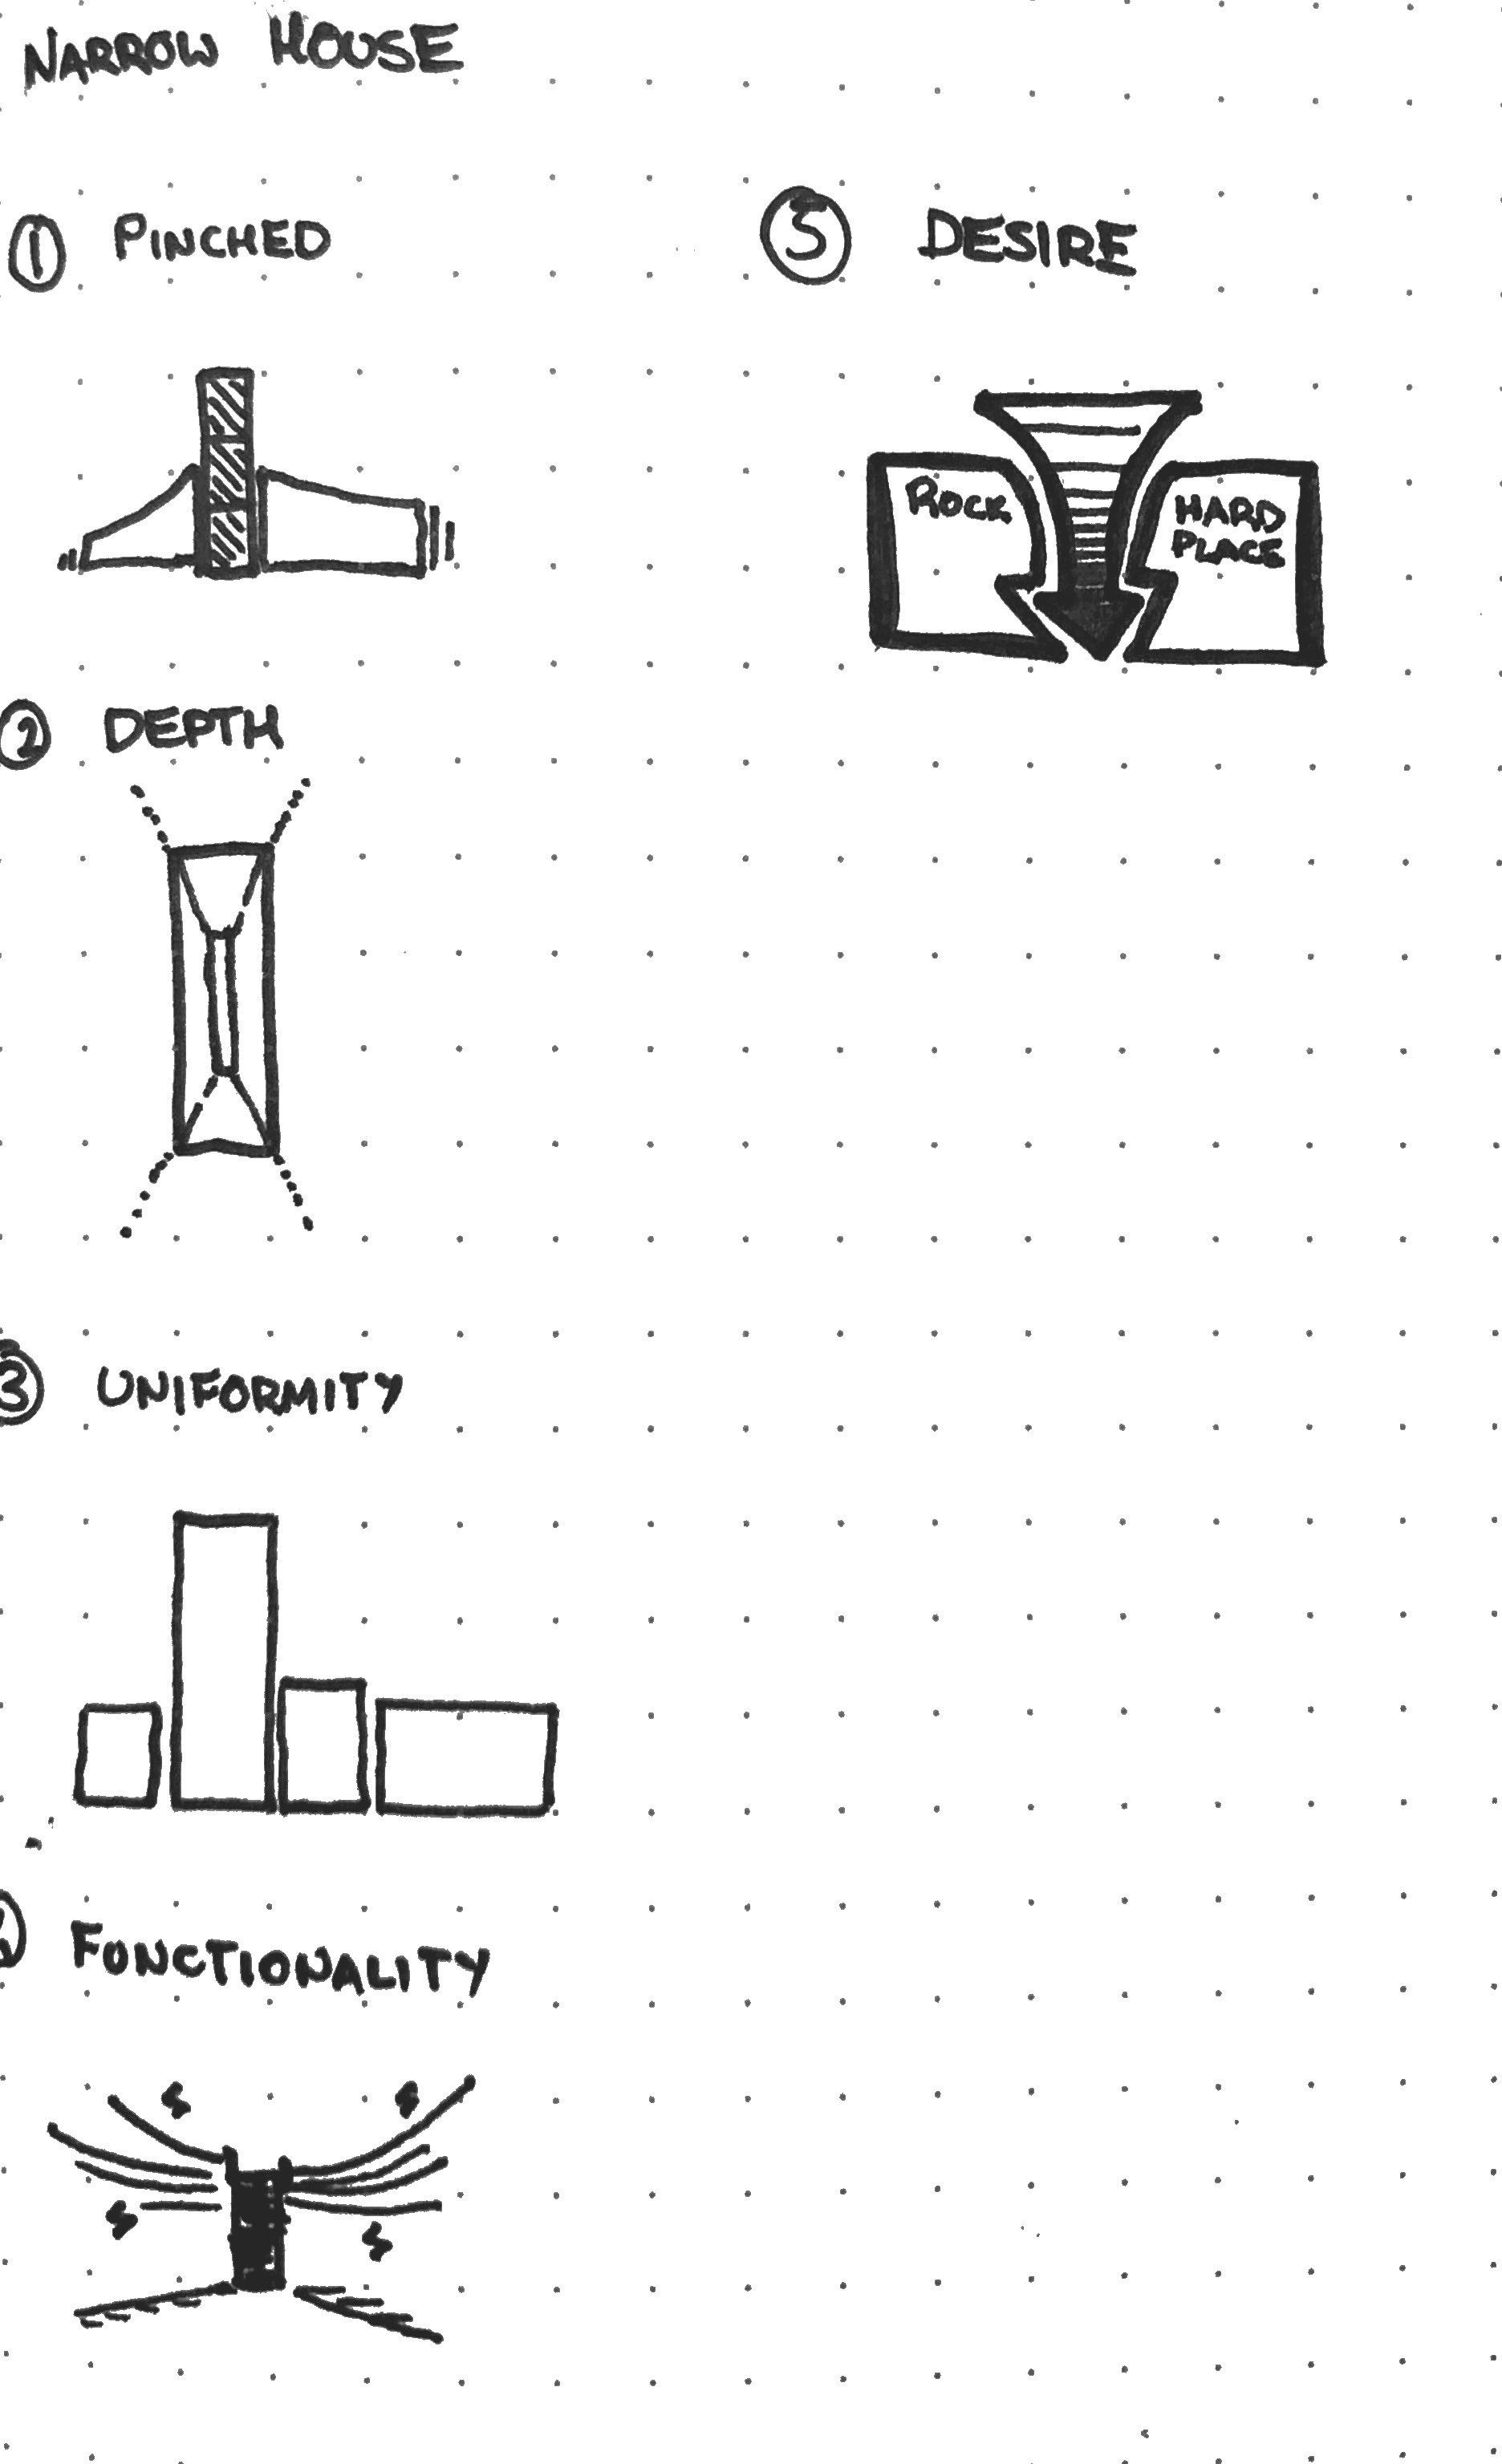 NARROW HOUSE
① PINCHED
② DEPTH
③ UNIFORMITY
FONCTIONALITY
⑤ DESIRE
ROCK
HARD
PLACE